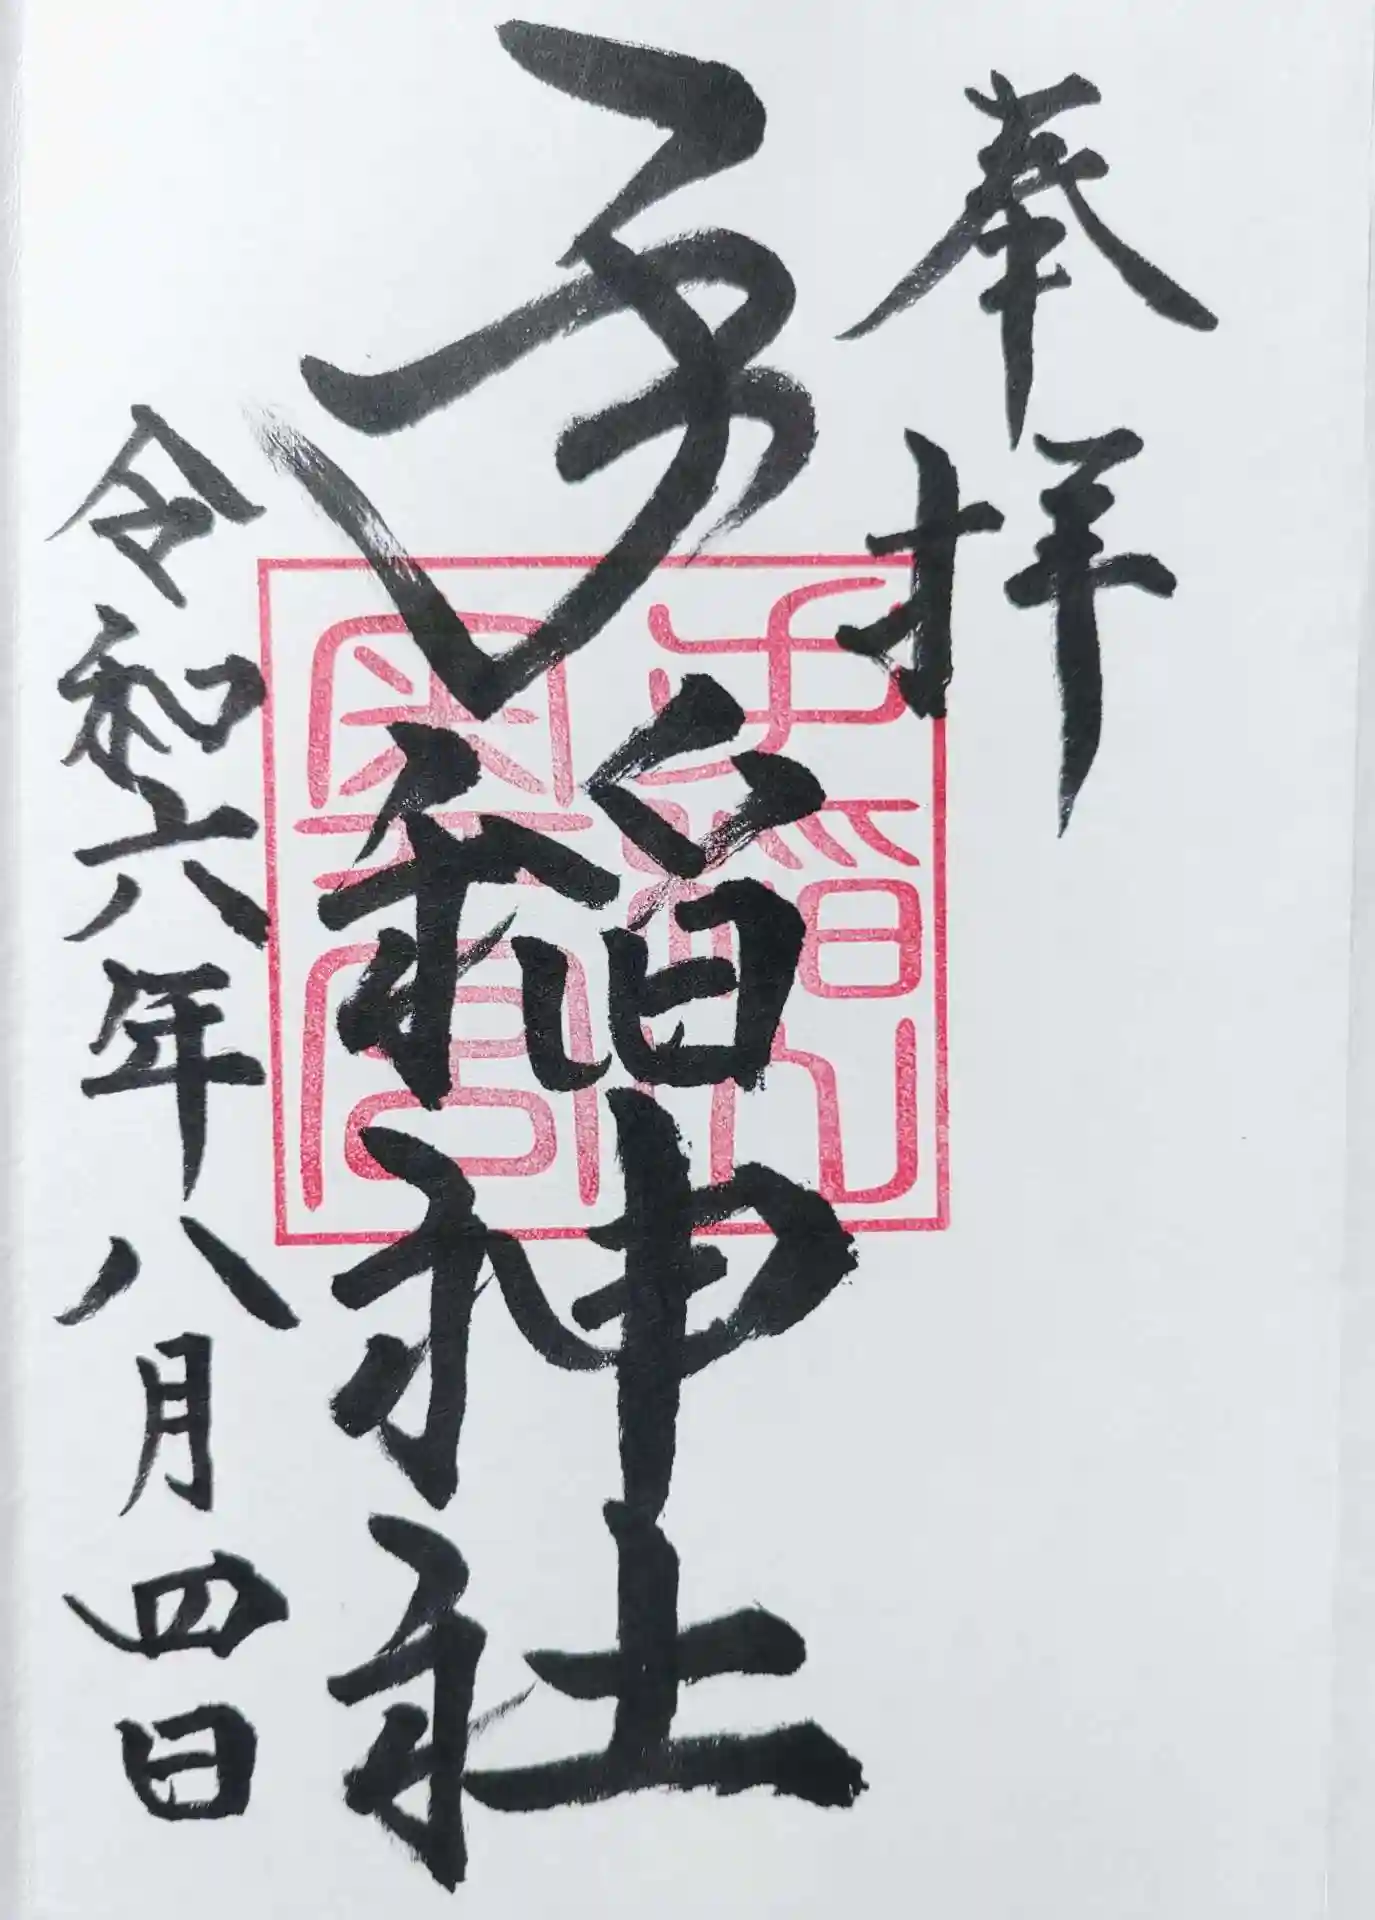 奉拝
手稲神社
令和六年八月四日